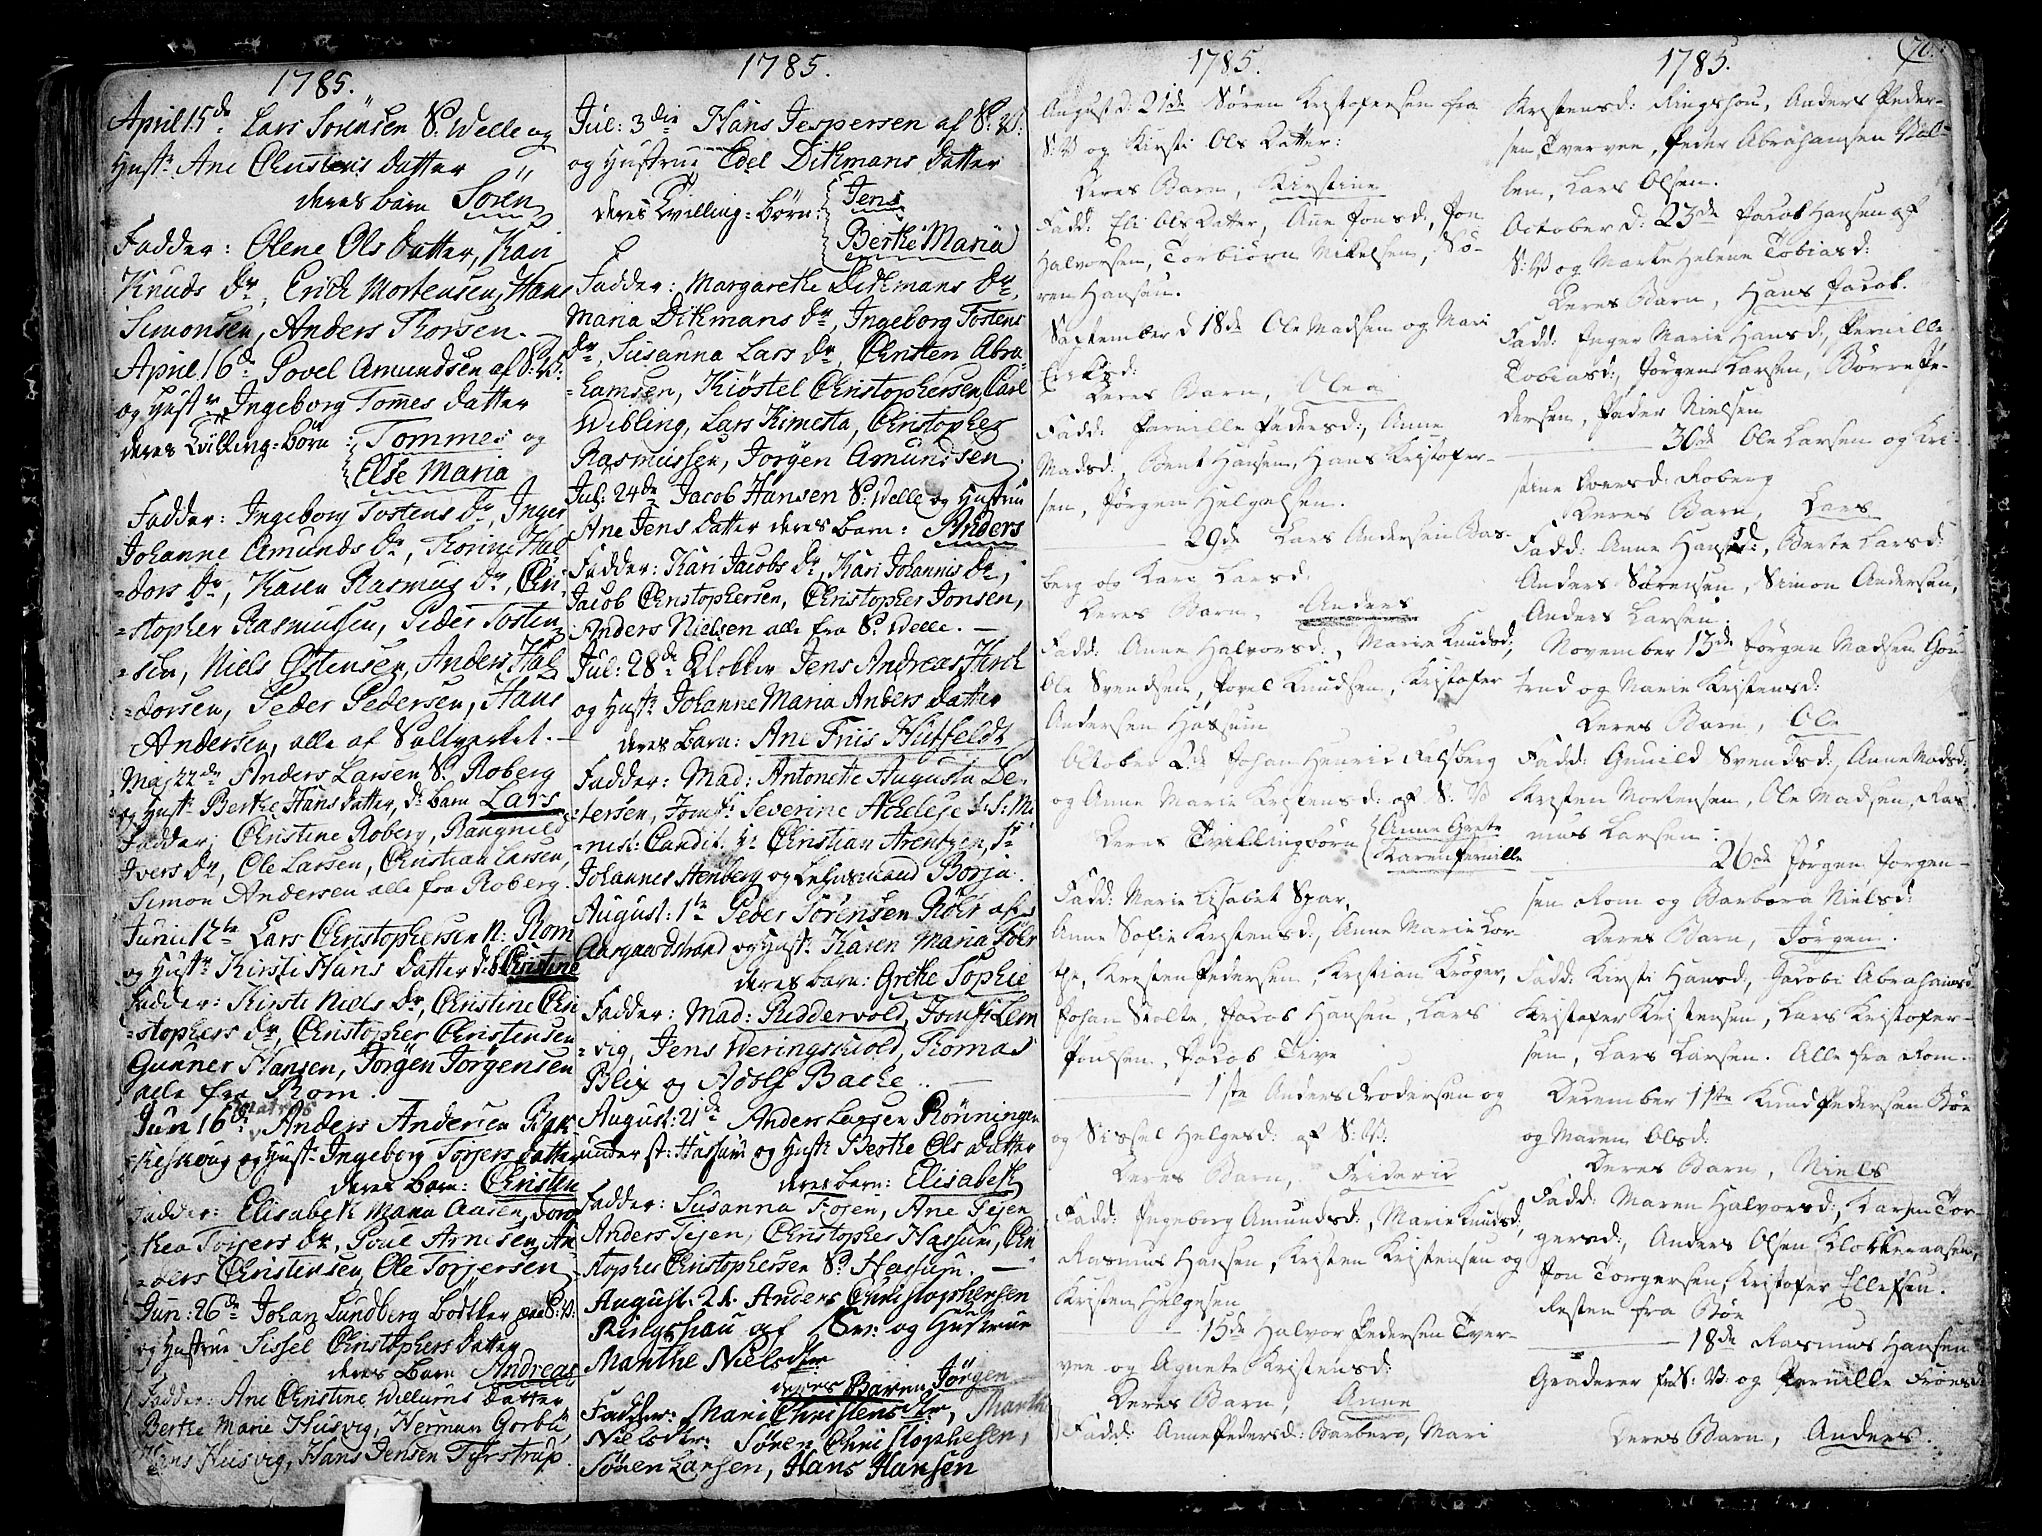 1785.
April 15de Lars Sörensen S: Welle og
Hust: Ane Christens datter
deres barn Sören
Fadder: Olene Ols datter, Kari
Knuds dr, Erich Mortensen, Hans
Simonsen, Anders Thorsen.
April 16de Povel Amundsen af S: V:
og Hustr Ingeborg Tomes datter
deres Tvilling-börn: Tommes og
Else Maria
Fadder: Ingeborg Tostens dr, Inger
Johanne Amunds dr, Thorine Hal
-dors dr, Karen Rasmus dr, Chri
-stopher Rasmussen, Peder Tosten
-sen, Niels Østensen, Anders Hal
-dorsen, Peder Pedersen, Hans
Andersen, alle af Saltverket.
Maj 22de Anders Larsen S: Roberg
og Hust: Berthe Hans datter, d: barn Lars
Fadder: Christine Roberg, Rangnild
Ivers dr, Ole Larsen, Christian Larsen,
Simon Andersen alle fra Roberg.
Junii 12te Lars Christophersen N: Rom
og Hustr Kirsti Hans datter d: b: Christine
Fadder: Kirsti Niels dr, Christine Chri
-stophers dr, Christopher Christensen
Gunner Hansen, Jörgen Jörgensen
alle fra Rom.
Jun 16de Matros Anders Andersen Bak
-keskoug og Hust: Ingeborg Torgers datter
deres barn: Christen
Fadder: Elisabeth Maria Aasen, Doro
-thea Torgers dr, Poul Arnesen, An
-ders Christensen, Ole Torjersen
Jun: 26de Johan Lundberg Bödtker paa S: V:
og Hustrue Sissel Christophers datter
deres barn Andreas
Fadder: Ane Christine Willums datter
Berthe Marie Husvig, Herman Gorbu,
Hans Husvig, Hans Jensen Tyrstrup.
1785.
Jul: 3die Hans Jespersen af S: V:
og Hustrue Edel Ditkmans datter
deres Tvilling-börn: Jens
Berthe Maria
Fadder: Margarethe Ditkmans dr,
Maria Ditkmans dr, Ingeborg Tostens
dr, Susanna Lars dr, Christen Abra
-hamsen, Kiöstel Christophersen, Carl
Wibling, Lars Kimesta, Christopher
Rasmussen, Jörgen Amundsen
Jul: 24de Jacob Hansen S: Welle og Hustrue
Ane Jens datter deres barn: Anders
Fadder: Kari Jacobs dr, Kari Johannis dr,
Jacob Christophersen, Christopher Jonsen,
Anders Nielsen alle fra S: Welle.
Jul: 28de Klokker Jens Andreas Kirch
og Hust: Johanne Maria Anders datter
deres barn: Ane Friis Hutfeldt
Fadder: Mad: Antonete Augusta Pe-
-tersen, Jomfr: Severine S: S: Mi
-nist: Candit. Hr Christian Arentzen, Sr
Johannes Stenberg og Lehnsmand Borja.
August: 1te Peder Sörensen Röhr af
Aargaardstrand og Hust: Karen Maria Föhr
deres barn: Grethe Sophie
Fadder: Mad: Riddervold, Jomfr: Lem
-vig, Jens Weringskiold, Thomas
Blix og Adolf Backe.
August: 21de Anders Larsen Röningen
under st: Hassum og Hust: Berthe Ols datter
deres barn: Elisabeth
Fadder: Susanna Fosen, Ane Tejen
Anders Tejen, Christopher Hassum, Chri
stopher Christophersen S: Hassum.
August. 21. Anders Christophersen
Ringshau af Sem: og Hustrue
Marthe Nielsdtr
deres Baren Jörgen
Fadder: Mari Christensdtr, Marthe
Nielsdtr: Sören Christophesen,
Sören Larsen, Hans Hansen
1785.
August d: 21de Søren Kristofersen fra
S: V og Kirsti Ols Datter:
Deres Barn, Kirstine
Fadd: Eli Ols Datter, Anne Jonsd:, Jon
Halvorsen, Torbiørn Mikelsen, Sø-
ren Hansen.
September d 18de Ole Madsen og Mari
Eriksd:
Deres Barn, Olea
Fadd: Pernille Pedersd:, Anne
Madsd:, Bent Hansen, Hans Kristofer-
sen, Jørgen Helgesen.
29de Lars Andersen Bas-
berg og Kari Larsd:
Deres Barn, Anders
Fadd: Anne Halvorsd:, Marie Knudsd:,
Ole Svendsen, Povel Knudsen, Kristofer
Andersen Hassum
October 2de Johan Henric Relsberg
og Anne Marie Kristensd: af S: V
Deres Tvillingbørn Anne Grete
Karen Pernille
Fadd: Marie Lisabet Spar,
Anne Sofie Kristensd:, Anne Marie Lor-
the, Kristen Pedersen, Kristian Krøger,
Johan Stolte, Jacob Hansen, Lars
Poulsen, Jacob Tive
1ste Anders Brodersen og
og Sissel Helgesd: af S: V:
Deres Barn, Frideric
Fadd: Ingeborg Amundsd:, Marie Knudsd:,
Rasmus Hansen, Kristen Kristensen og
Kristen Helgesen
15de Halvor Pedersen Tver-
vee og Agnete Kristensd:
Deres Barn, Anne
Fadd: Anne Pedersd: Barbero, Mari
1785.
70.
Kristensd: Ringshou, Anders Peder-
sen Tvervee, Peder Abrahamsen Val-
len, Lars Olsen.
October d: 23de Jacob Hansen af
S: V og Marte Helene Tobiasd:
Deres Barn, Hans Jacob.
Fadd: Inger Marie Hansd:, Pernille
Tobiasd:, Jørgen Larsen, Børre Pe-
dersen, Peder Nielsen
30de Ole Larsen og Kri-
stine Iversd: Roberg
Deres Barn, Lars
Fadd: Anne Hansd:, Berte Larsd:
Anders Sørensen, Simon Andersen,
Anders Larsen.
November 13de Jørgen Madsen Gou-
trud og Marie Kristensd:
Deres Barn, Ole
Fadd: Gunild Svendsd:, Anne Madsd:,
Kristen Mortensen, Ole Madsen, Ras-
mus Larsen.
26de Jørgen Jorgen-
sen Rom og Barbora Nielsd:
Deres Barn, Jørgen.
Fadd: Kirsti Hansd:, Jacobi Abrahamsd:
Kristofer Kristensen, Lars Kristofer-
sen, Lars Larsen. Alle fra Rom.
December 11te Knud Pedersen Bøe
og Maren Olsd:
Deres Barn, Niels
Fadd: Maren Halvorsd:, Karen Tor-
gersd:, Anders Olsen Klokkeraasen,
Jon Torgersen, Kristofer Ellefsen.
Resten fra Bøe
18de Rasmus Hansen
Graderer fra S: V: og Pernille Foensd:
Deres Barn, Anders.